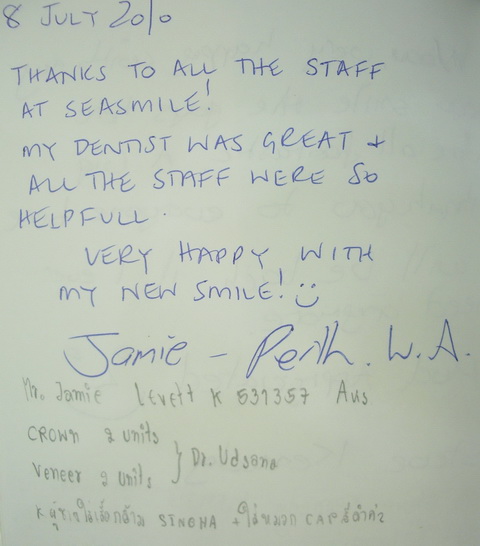 8 JULY 2010
THANKS TO ALL THE STAFF
AT SEASMILE!
MY DENTIST WAS GREAT +
ALL THE STAFF WERE SO
HELPFULL.
VERY HAPPY WITH
MY NEW SMILE! :)
Jamie - Perth. W.A.
Mr. Jamie Levett K 531357 Aus
CROWN 2 units
Veneer 2 units } Dr. Udsana
K ผู้ชายใส่เสื้อกล้าม SINGHA + ใส่หมวก CAP สีดำค่ะ